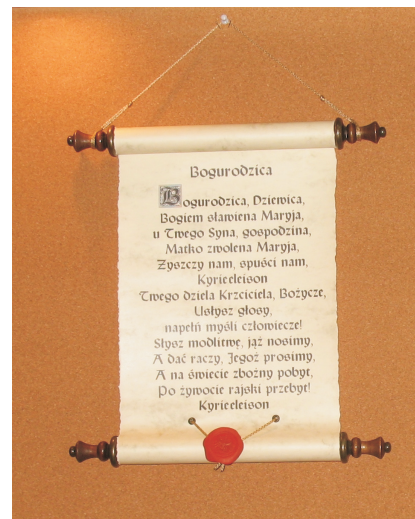 Bogurodzica
Bogurodzica, Dziewica,
Bogiem sławiena Maryja,
u Twego Syna, gospodzina,
Matko zwolena Maryja,
Zyszczy nam, spuści nam,
Kyrieeleison
Twego dziela Krzciciela, Bożycze,
Usłysz głosy,
napełń myśli człowiecze!
Słysz modlitwę, jąż nosimy,
A dać raczy, Jegoż prosimy,
A na świecie zbożny pobyt,
Po żywocie rajski przebyt!
Kyrieeleison